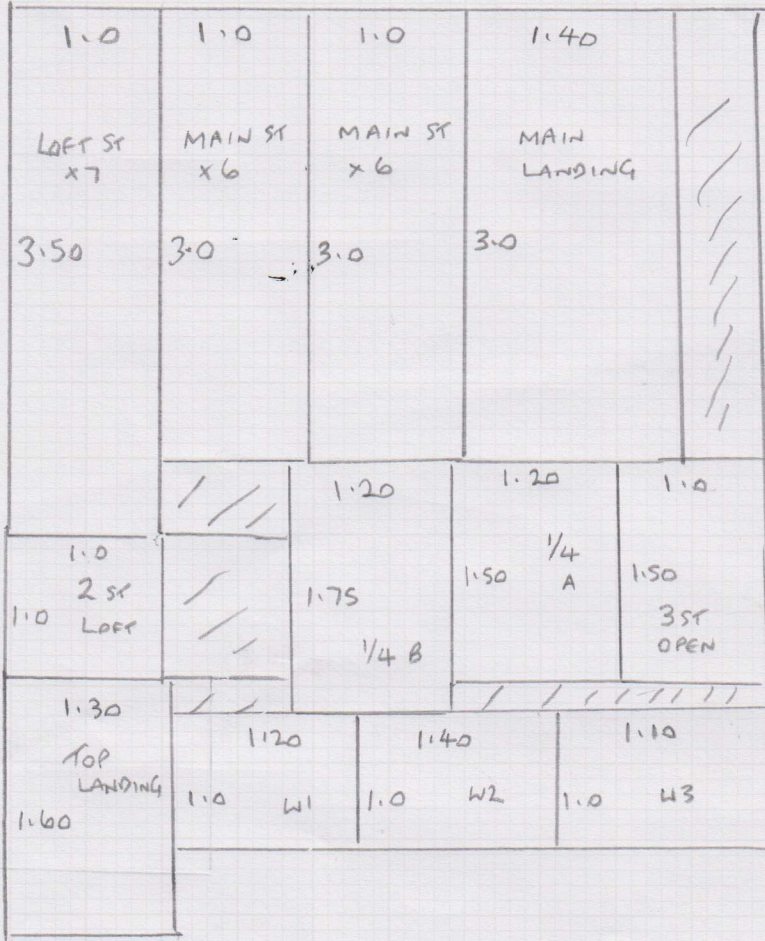 1.0
LOFT ST
x7
3.50
1.0
MAIN ST
x6
3.0
1.0
MAIN ST
x6
3.0
1.40
MAIN
LANDING
3.0
1.0
2 ST
1.0 LOFT
1.20
1.75
1/4 B
1.20
1/4
1.50 A
1.0
1.50
3 ST
OPEN
1.30
TOP
LANDING
1.60
1.20
1.0 W1
1.40
1.0 W2
1.10
1.0 W3